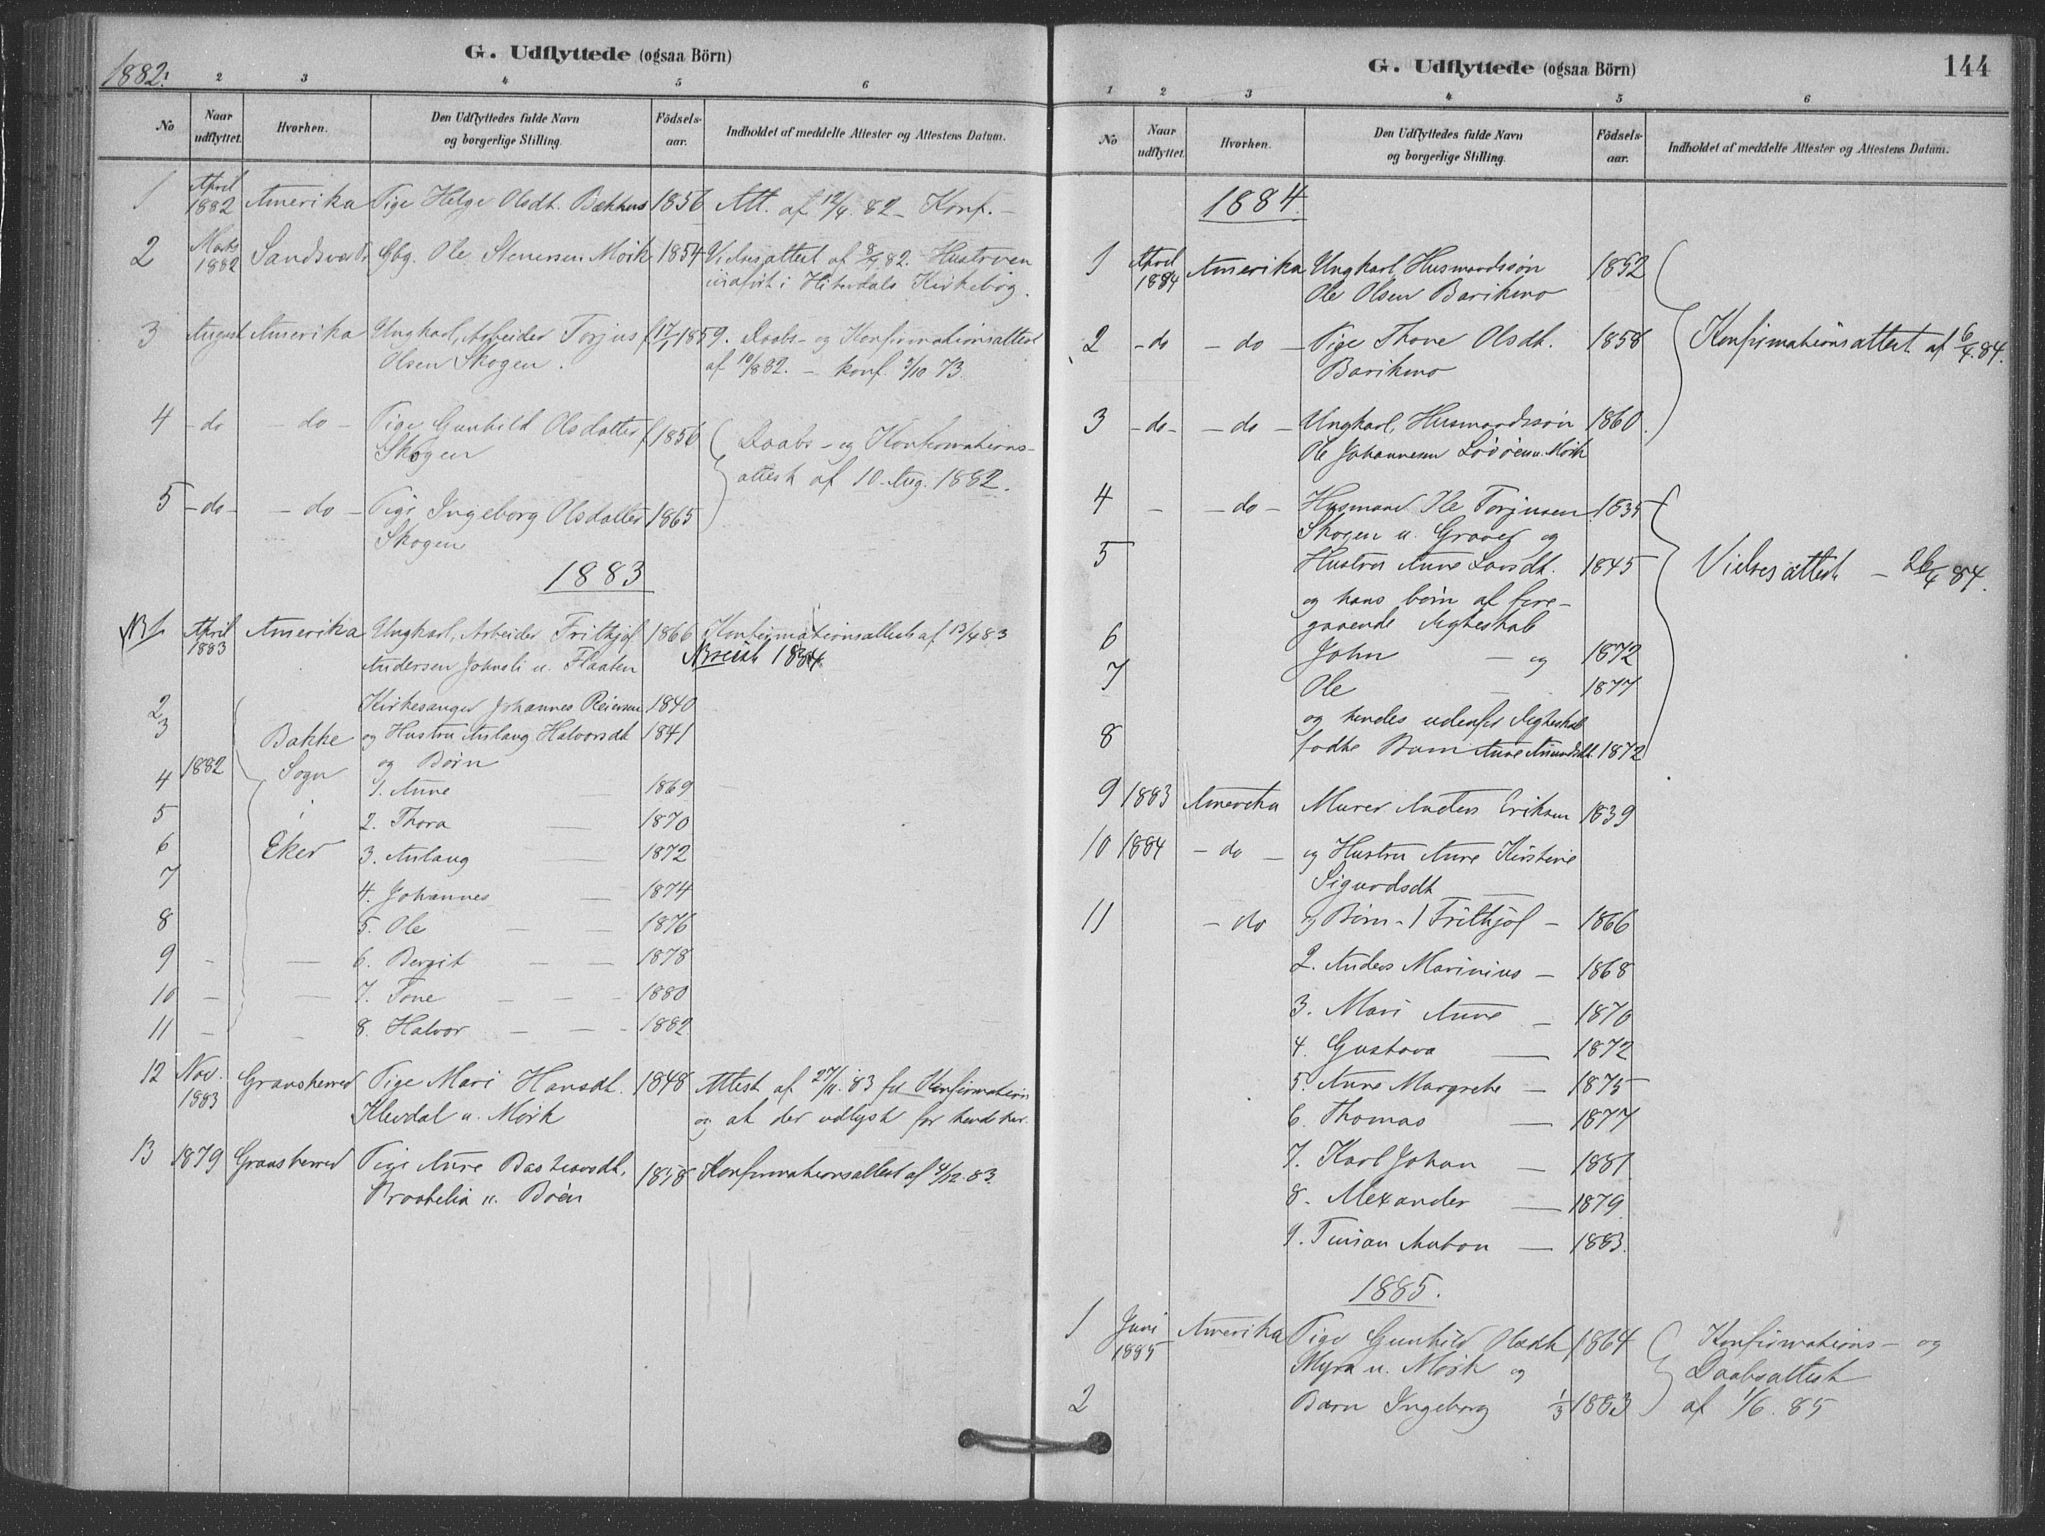 1882.
G. Udflyttede (ogsaa Börn)
2 3 4 5 6
No
Naar udflyttet.
Hvorhen.
Den Udflyttedes fulde Navn og borgerlige Stilling.
Födsels-aar.
Indholdet af meddelte Attester og Attestens Datum.
1 April 1882 Amerika Pige Helge Olsdt. Bækkhus 1856 Att. af 12/4 82 – Konf. –
2 Marts 1882 Sandsværd Gbg. Ole Stenersen Mørk 1854 Vielsesattest af 8/4 82. Hustruen
indført i Hiterdals Kirkebog.
3 August Amerika Ungkarl, Arbeider Torjus f 17/1 1859. Daabs- og Konfirmationsattest
Olsen Skogen. af 10/8 82. – konf. 5/10 73.
4 – do – do – Pige Gunhild Olsdatter f 1856 Daabs- og Konfirmations-
Skogen attest af 10. Aug. 1882.
5 – do – – do – Pige Ingeborg Olsdatter 1865
Skogen
1883
No 1. April 1883 Amerika Ungkarl, Arbeider Frithjof 1866 Konfirmationsattest af 13/4 83
Andersen Johnsli u. Flaaten 1884
2 Kirkesanger Johannes Reiersen 1840
3 Bakke og Hustru Aslaug Halvorsdt 1841
1882 Sogn og Børn
4 1. Anne — 1869
5 2. Thora — 1870
6 Eker 3. Aslaug — 1872
7 4. Johannes — 1874
8 5. Ole — — 1876
9 – — 6. Bergit — — 1878
10 – — 7. Tone — — 1880
11 – – 8. Halvor — — 1882
12 Nov. 1883 Gransherred Pige Mari Hansdt. 1848 Attest af 27/11 83 for Konfirmation
Klevdal u. Mørk og at der udlyst for hende her.
13 1879 Gransherred Pige Anne Bastiansdt. 1858 Konfirmationsattest af 4/12. 83.
Braatelia u. Bøen
G. Udflyttede (ogsaa Börn)
144
1 2 3 4 5 6
No
Naar udflyttet.
Hvorhen.
Den Udflyttedes fulde Navn og borgerlige Stilling.
Födsels-aar.
Indholdet af meddelte Attester og Attestens Datum.
1884.
1 April 1884 Amerika Ungkarl Husmandssøn 1852
Ole Olsen Barikmo
2 – do – do – Pige Thone Olsdt. 1858 Konfirmationsattest af 6/4 84.
Barikmo
3 – do – – do – Ungkarl, Husmandssøn 1860
Ole Johannesen u. Mørk
4 – – do – Husmand Ole Torjusen 1835
Skogen u. Graver og
5 Hustru Anne Larsdt. 1845 Vielsesattest – 26/4 84.
og hans børn af fore-
gaaende Ægteskab
6 John – og 1872
7 Ole – 1877
og hendes udenfor Ægteskab
8 fødte Barn Anne Amundsdt. 1872
9 1883 Amerika Murer Anders Eriksen 1839
10 1884 – do – og Hustru Anne Kirstine
Sigurdsdt
11 – do og Børn – 1 Frithjof – 1866
2. Anders Marinius – 1868
3. Mari Anne – 1870
4. Gustava — 1872
5. Anne Margrethe – 1875
6. Thomas — 1877
7. Karl Johan — 1881
8. Alexander — 1879
9. Anton — 1883.
1885.
1 Juni 1885 Amerika Pige Gunhild Olsdt 1864 Konfirmations- og
Myra u. Mørk og Daabsattest
2 Barn Ingeborg 1/3 1883 af 1/6. 85